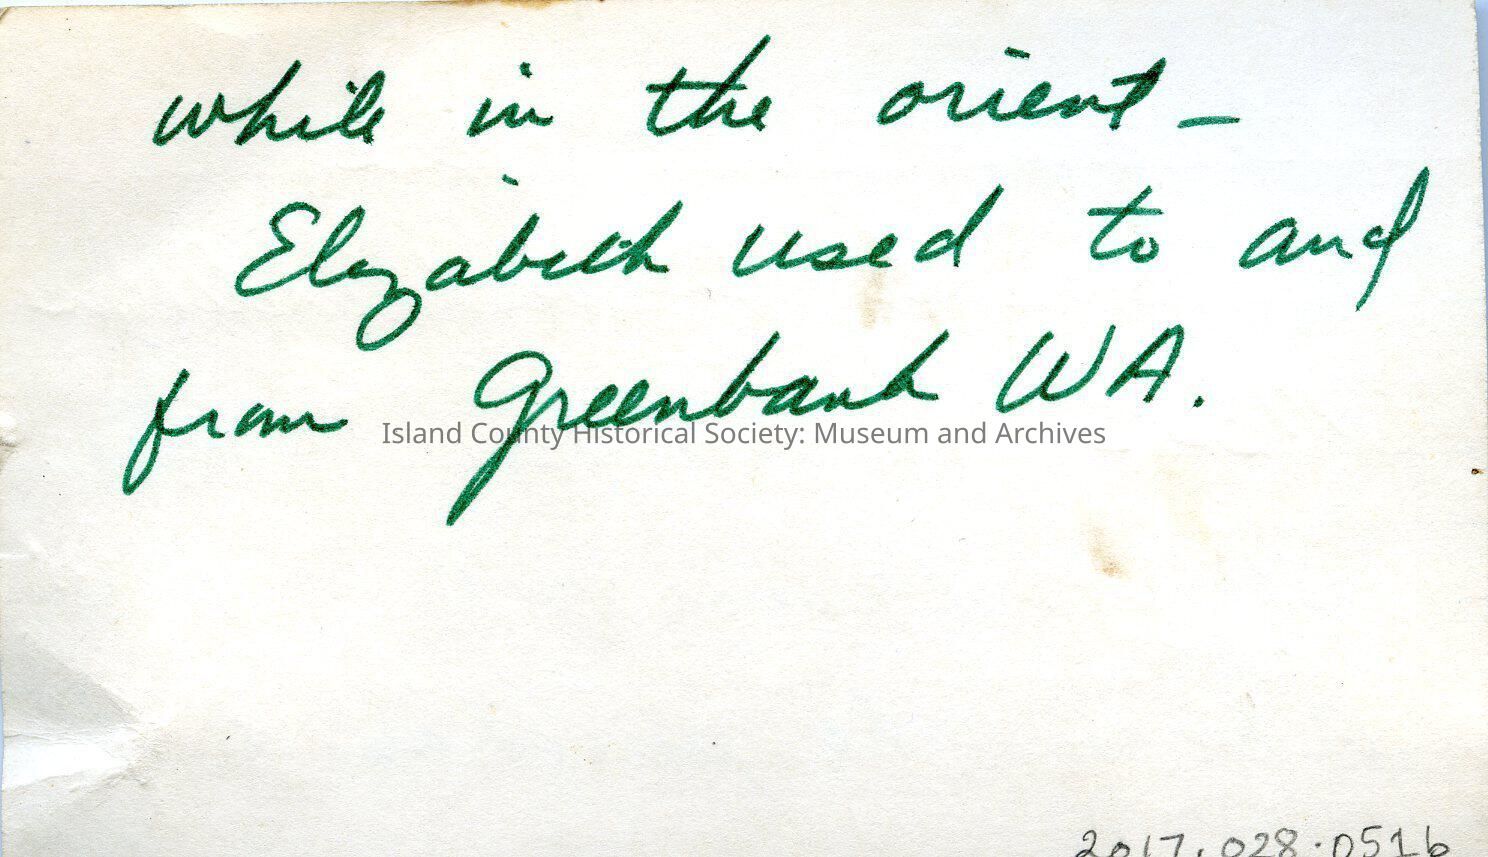 while in the orient -
Elizabeth used to and
from Greenbank WA.
Island County Historical Society: Museum and Archives
2017.028.051b